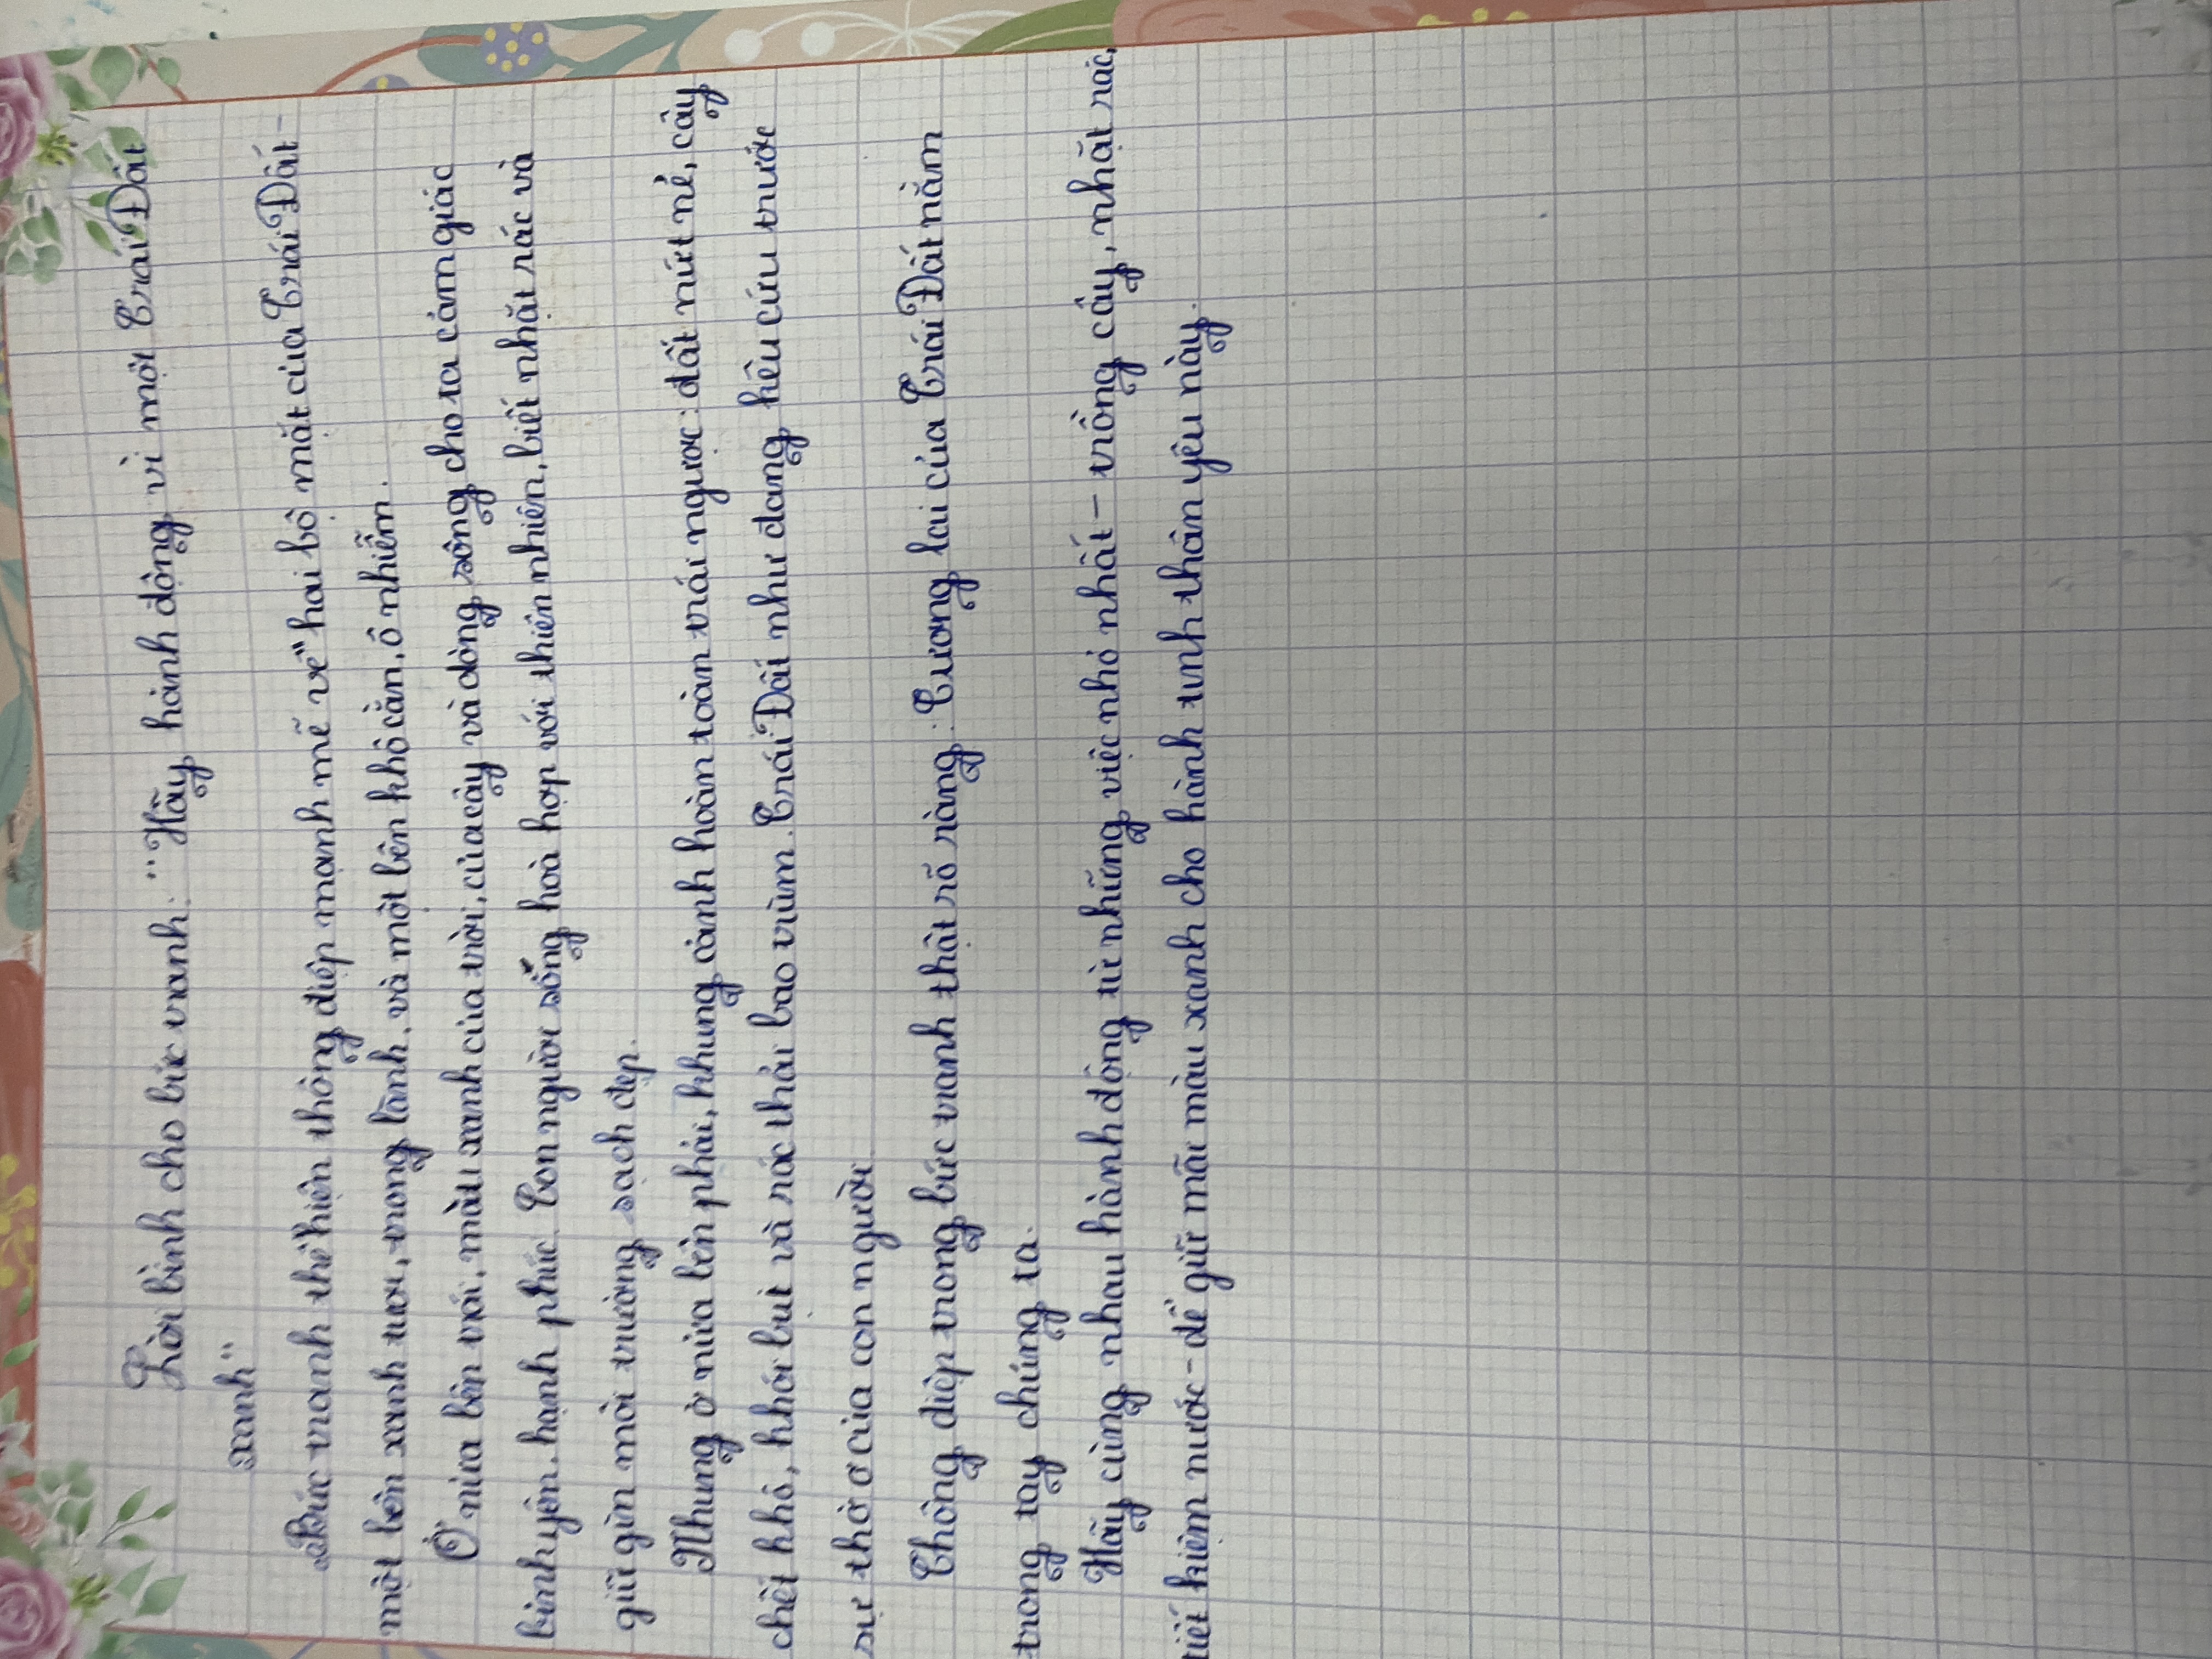 Lời bình cho bức tranh: "Hãy hành động vì một Trái Đất
xanh"
Bức tranh thể hiện thông điệp mạnh mẽ về hai bộ mặt của Trái Đất -
một bên xanh tươi, trong lành, và một bên khô cằn, ô nhiễm.
Ở nửa bên trái, màu xanh của trời, của cây và dòng sông cho ta cảm giác
bình yên, hạnh phúc. Con người sống hoà hợp với thiên nhiên, biết nhặt rác và
giữ gìn môi trường sạch đẹp.
Nhưng ở nửa bên phải, khung cảnh hoàn toàn trái ngược: đất nứt nẻ, cây
chết khô, khói bụi và rác thải bao trùm. Trái Đất như đang kêu cứu trước
sự thờ ơ của con người.
Thông điệp trong bức tranh thật rõ ràng: Tương lai của Trái Đất nằm
trong tay chúng ta.
Hãy cùng nhau hành động từ những việc nhỏ nhất - trồng cây, nhặt rác,
tiết kiệm nước - để giữ mãi màu xanh cho hành tinh thân yêu này.